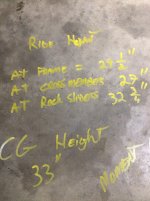 Ride Height
At Frame = 29 1/2"
At Crossmember 29"
At Rock Sliders 32 3/4"
CG Height
33"